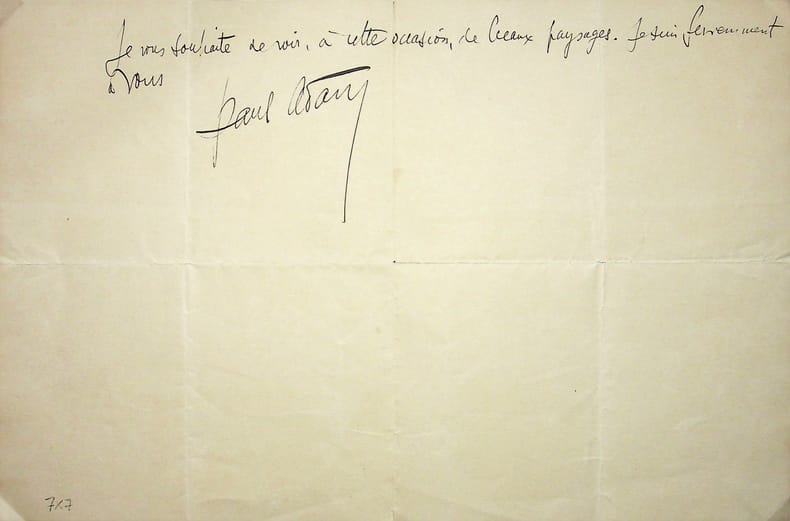 Je vous souhaite de voir, à cette occasion, de beaux paysages. Je suis fervemment
à vous
Paul Adam
7x7